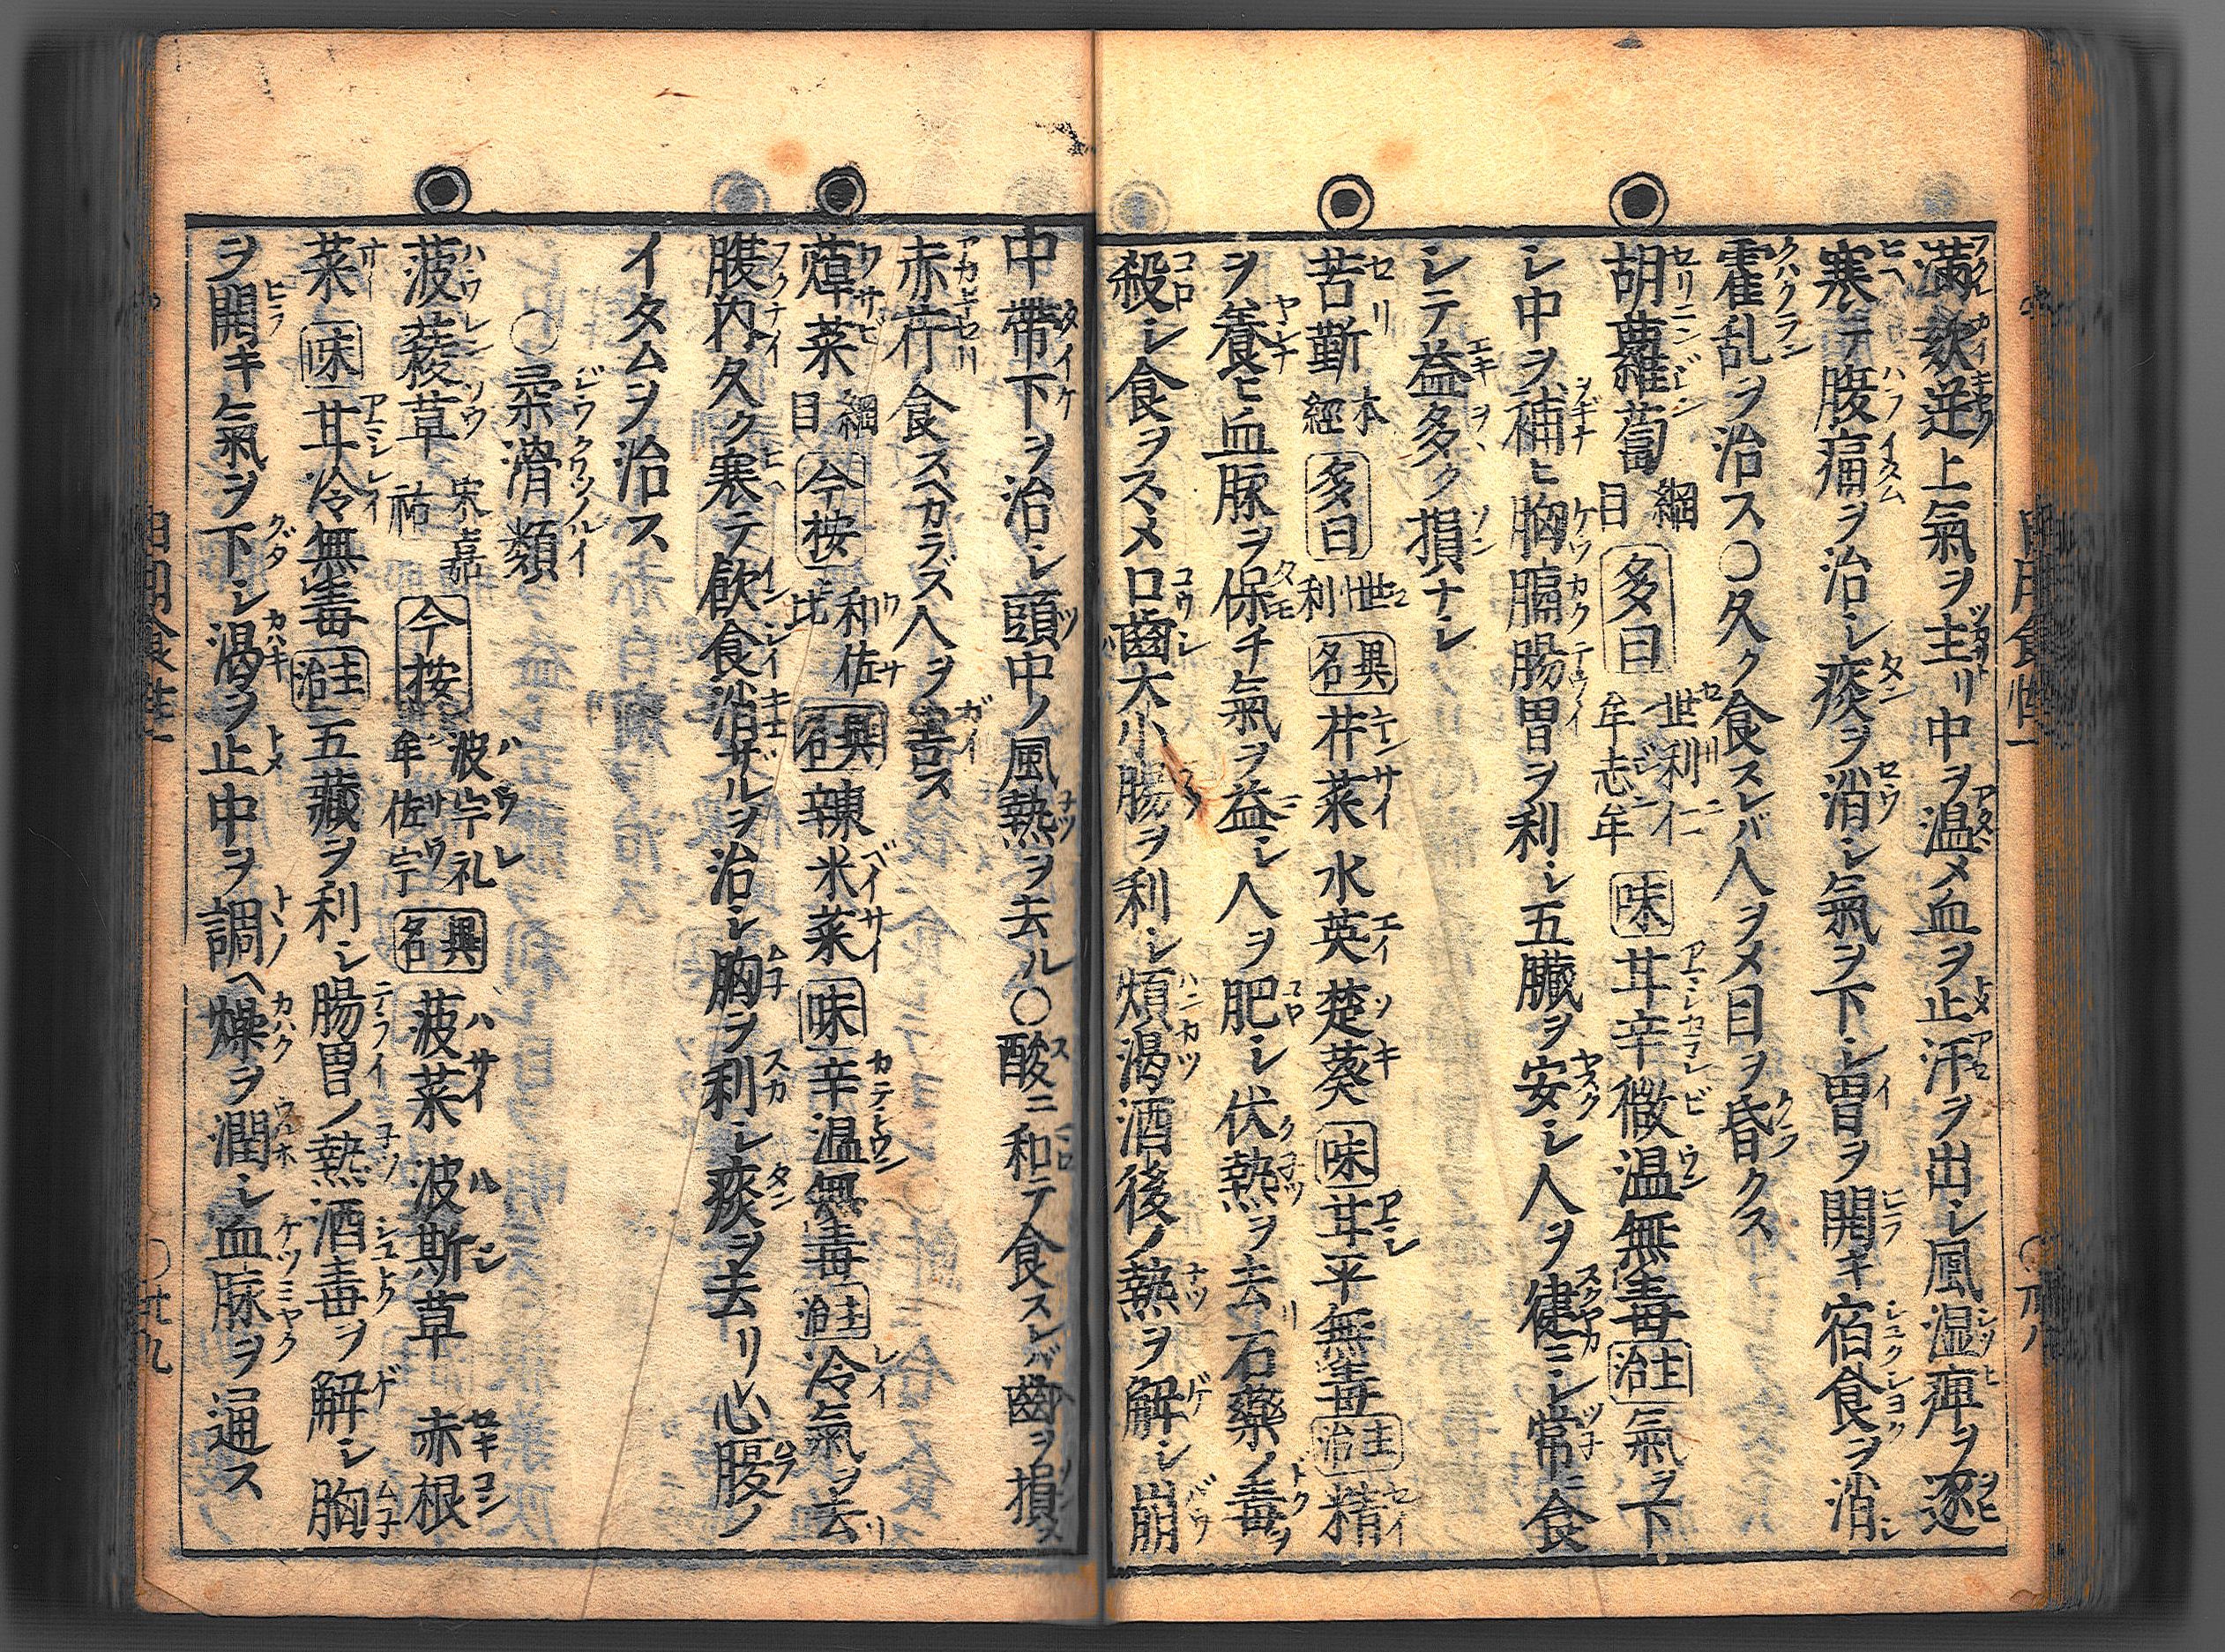 満欬逆上氣ヲ主リ中ヲ温メ血ヲ止汗ヲ出シ風湿痺ヲ逐
寒テ腹痛ヲ治シ痰ヲ消シ氣ヲ下シ胃ヲ開キ宿食ヲ消シ
霍乱ヲ治ス〇久ク食スレバ人ヲメ目ヲ昏クス
胡蘿蔔 綱目 多曰 世利仁牟志年 味 甘辛微温無毒 主治 氣ヲ下
シ中ヲ補ヒ胸膈腸胃ヲ利シ五臓ヲ安シ人ヲ健ニシ常ニ食
シテ益多ク損ナシ
苦斳 本經 多曰 世利 異名 芹菜 水英 楚葵 味 甘平無毒 主治 精
ヲ養ヒ血脉ヲ保チ氣ヲ益シ人ヲ肥シ伏熱ヲ去リ石藥ノ毒ヲ
殺シ食ヲスヽメ口齒大小腸ヲ利シ煩渇酒後ノ熱ヲ解シ崩
中帶下ヲ治シ頭中ノ風熱ヲ去ル〇酸ニ和テ食スレバ齒ヲ損ス
赤芹食スベカラズ人ヲ害ス
蔊菜 綱目 今按 和佐比 異名 辣米菜 味 辛温無毒 主治 冷氣ヲ去リ
腹内久ク寒テ飲食消ザルヲ治シ胸ヲ利シ痰ヲ去リ心腹ノ
イタムヲ治ス
〇柔滑類
菠薐草 宋嘉祐 今按 波宇礼牟佐宇 異名 菠菜 波斯草 赤根
菜 味 甘冷無毒 主治 五藏ヲ利シ腸胃ノ熱酒毒ヲ解シ胸
ヲ開キ氣ヲ下シ渇ヲ止中ヲ調ヘ燥ヲ潤シ血脉ヲ通ス